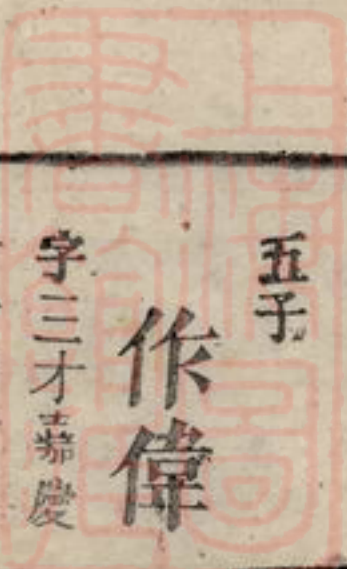 五子
作偉
字三才嘉慶